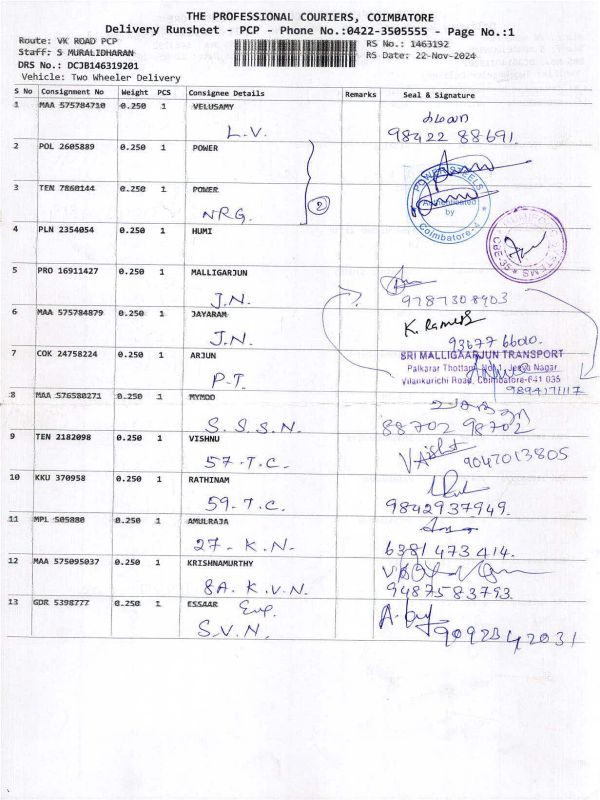 THE PROFESSIONAL COURIERS, COIMBATORE
Delivery Runsheet - PCP - Phone No.:0422-3505555 - Page No.:1
Route: VK ROAD PCP RS No.: 1463192
Staff: S MURALIDHARAN RS Date: 22-Nov-2024
DRS No.: DCJB146319201
Vehicle: Two Wheeler Delivery
S No Consignment No Weight PCS Consignee Details Remarks Seal & Signature
1 MAA 575784710 0.250 1 VELUSAMY
L.V. 98422 88691.
2 POL 2605889 0.250 1 POWER
3 TEN 7860144 0.250 1 POWER
NRG. 2
Authenticated
by
Coimbatore-4
4 PLN 2354054 0.250 1 HUMI
5 PRO 16911427 0.250 1 MALLIGARJUN
J.N. 9787308903
6 MAA 575784879 0.250 1 JAYARAM K. Ramesh
J.N. 93677 66010.
7 COK 24758224 0.250 1 ARJUN
P.T.
SRI MALLIGAARJUN TRANSPORT
Palkarar Thottam, No.1, Jeeva Nagar
Vilankurichi Road, Coimbatore-641 035
9894171117
8 MAA 576580271 0.250 1 MYMOD
S.S.S.N. 88702 98702
9 TEN 2182098 0.250 1 VISHNU
57.T.C. 9047013805
10 KKU 370958 0.250 1 RATHINAM
59.T.C. 9842937949.
11 MPL 505880 0.250 1 AMULRAJA
27-K.N. 6381 473 414.
12 MAA 575095037 0.250 1 KRISHNAMURTHY
8A.K.V.N. 9487583793.
13 GDR 5398777 0.250 1 ESSAAR
S.V.N. 9092342031